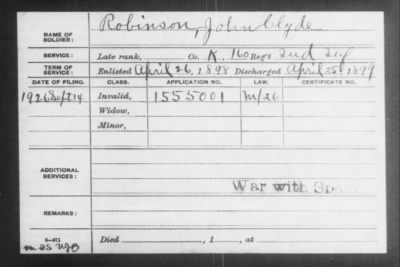 NAME OF SOLDIER: Robinson, John Clyde
SERVICE: Late rank, Co. K, 160 Reg't Ind Inf
TERM OF SERVICE: Enlisted April 26, 1898 Discharged April 25, 1899
DATE OF FILING. CLASS. APPLICATION NO. LAW. CERTIFICATE NO.
1926 Sept 14 Invalid, 1555001 M/26
Widow,
Minor,
ADDITIONAL SERVICES:
War with Sp
REMARKS:
Died , 1 , at